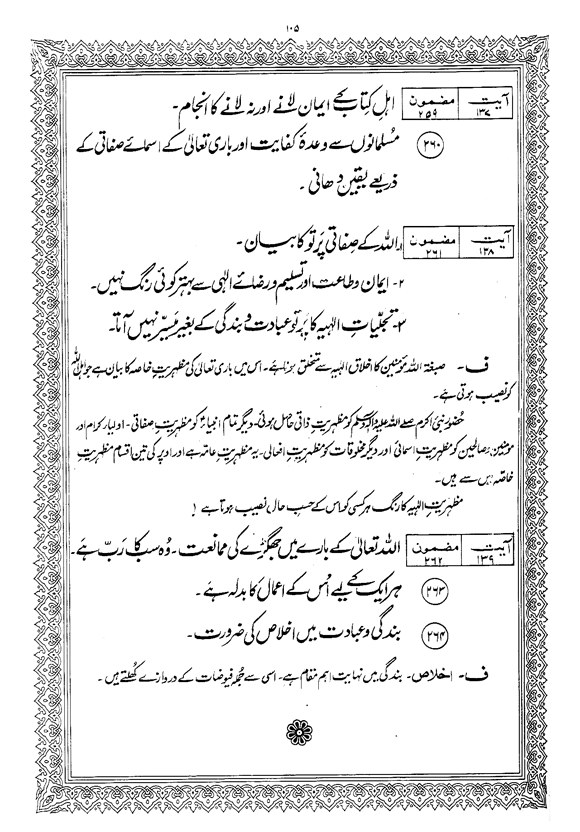 ۱۰۵
آیت ۱۳۷ مضمون ۲۵۹ اہلِ کتاب کے ایمان لانے اور نہ لانے کا انجام۔
۲۶۰ مسلمانوں سے وعدۂ کفایت اور باری تعالیٰ کے اسمائے صفاتی کے
ذریعے یقین دھانی۔
آیت ۱۳۸ مضمون ۲۶۱ ۱۔ اللہ کے صفاتی پرتو کا بیان۔
۲۔ ایمان و طاعت اور تسلیم و رضائے الٰہی سے بہتر کوئی رنگ نہیں۔
۳۔ تجلیاتِ الٰہیہ کا پرتو عبادت و بندگی کے بغیر میسر نہیں آتا۔
ف۔ صبغۃ اللہ مؤمنین کا اخلاقِ الٰہیہ سے متخلق ہونا ہے۔ اس میں باری تعالیٰ کی مظہریتِ خاصہ کا بیان ہے جو اہل اللہ
کو نصیب ہوتی ہے۔
حضور نبی اکرم صلے اللہ علیہ وآلہ وسلم کو مظہریتِ ذاتی حاصل ہوئی، دیگر تمام انبیاءؑ کو مظہریتِ صفاتی۔ اولیاء کرام اور
مؤمنین، صالحین کو مظہریتِ اسمائی اور دیگر مخلوقات کو مظہریتِ افعالی۔ یہ مظہریتِ عامہ ہے اور اوپر کی تین اقسام مظہریتِ
خاصہ میں سے ہیں۔
مظہریتِ الٰہیہ کا رنگ ہر کسی کو اس کے حسبِ حال نصیب ہوتا ہے!
آیت ۱۳۹ مضمون ۲۶۲ اللہ تعالیٰ کے بارے میں جھگڑے کی ممانعت۔ وہ سب کا ربّ ہے۔
۲۶۳ ہر ایک کے لیے اس کے اعمال کا بدلہ ہے۔
۲۶۴ بندگی و عبادت میں اخلاص کی ضرورت۔
ف۔ اخلاص۔ بندگی میں نہایت اہم مقام ہے۔ اسی سے جملہ فیوضات کے دروازے کُھلتے ہیں۔